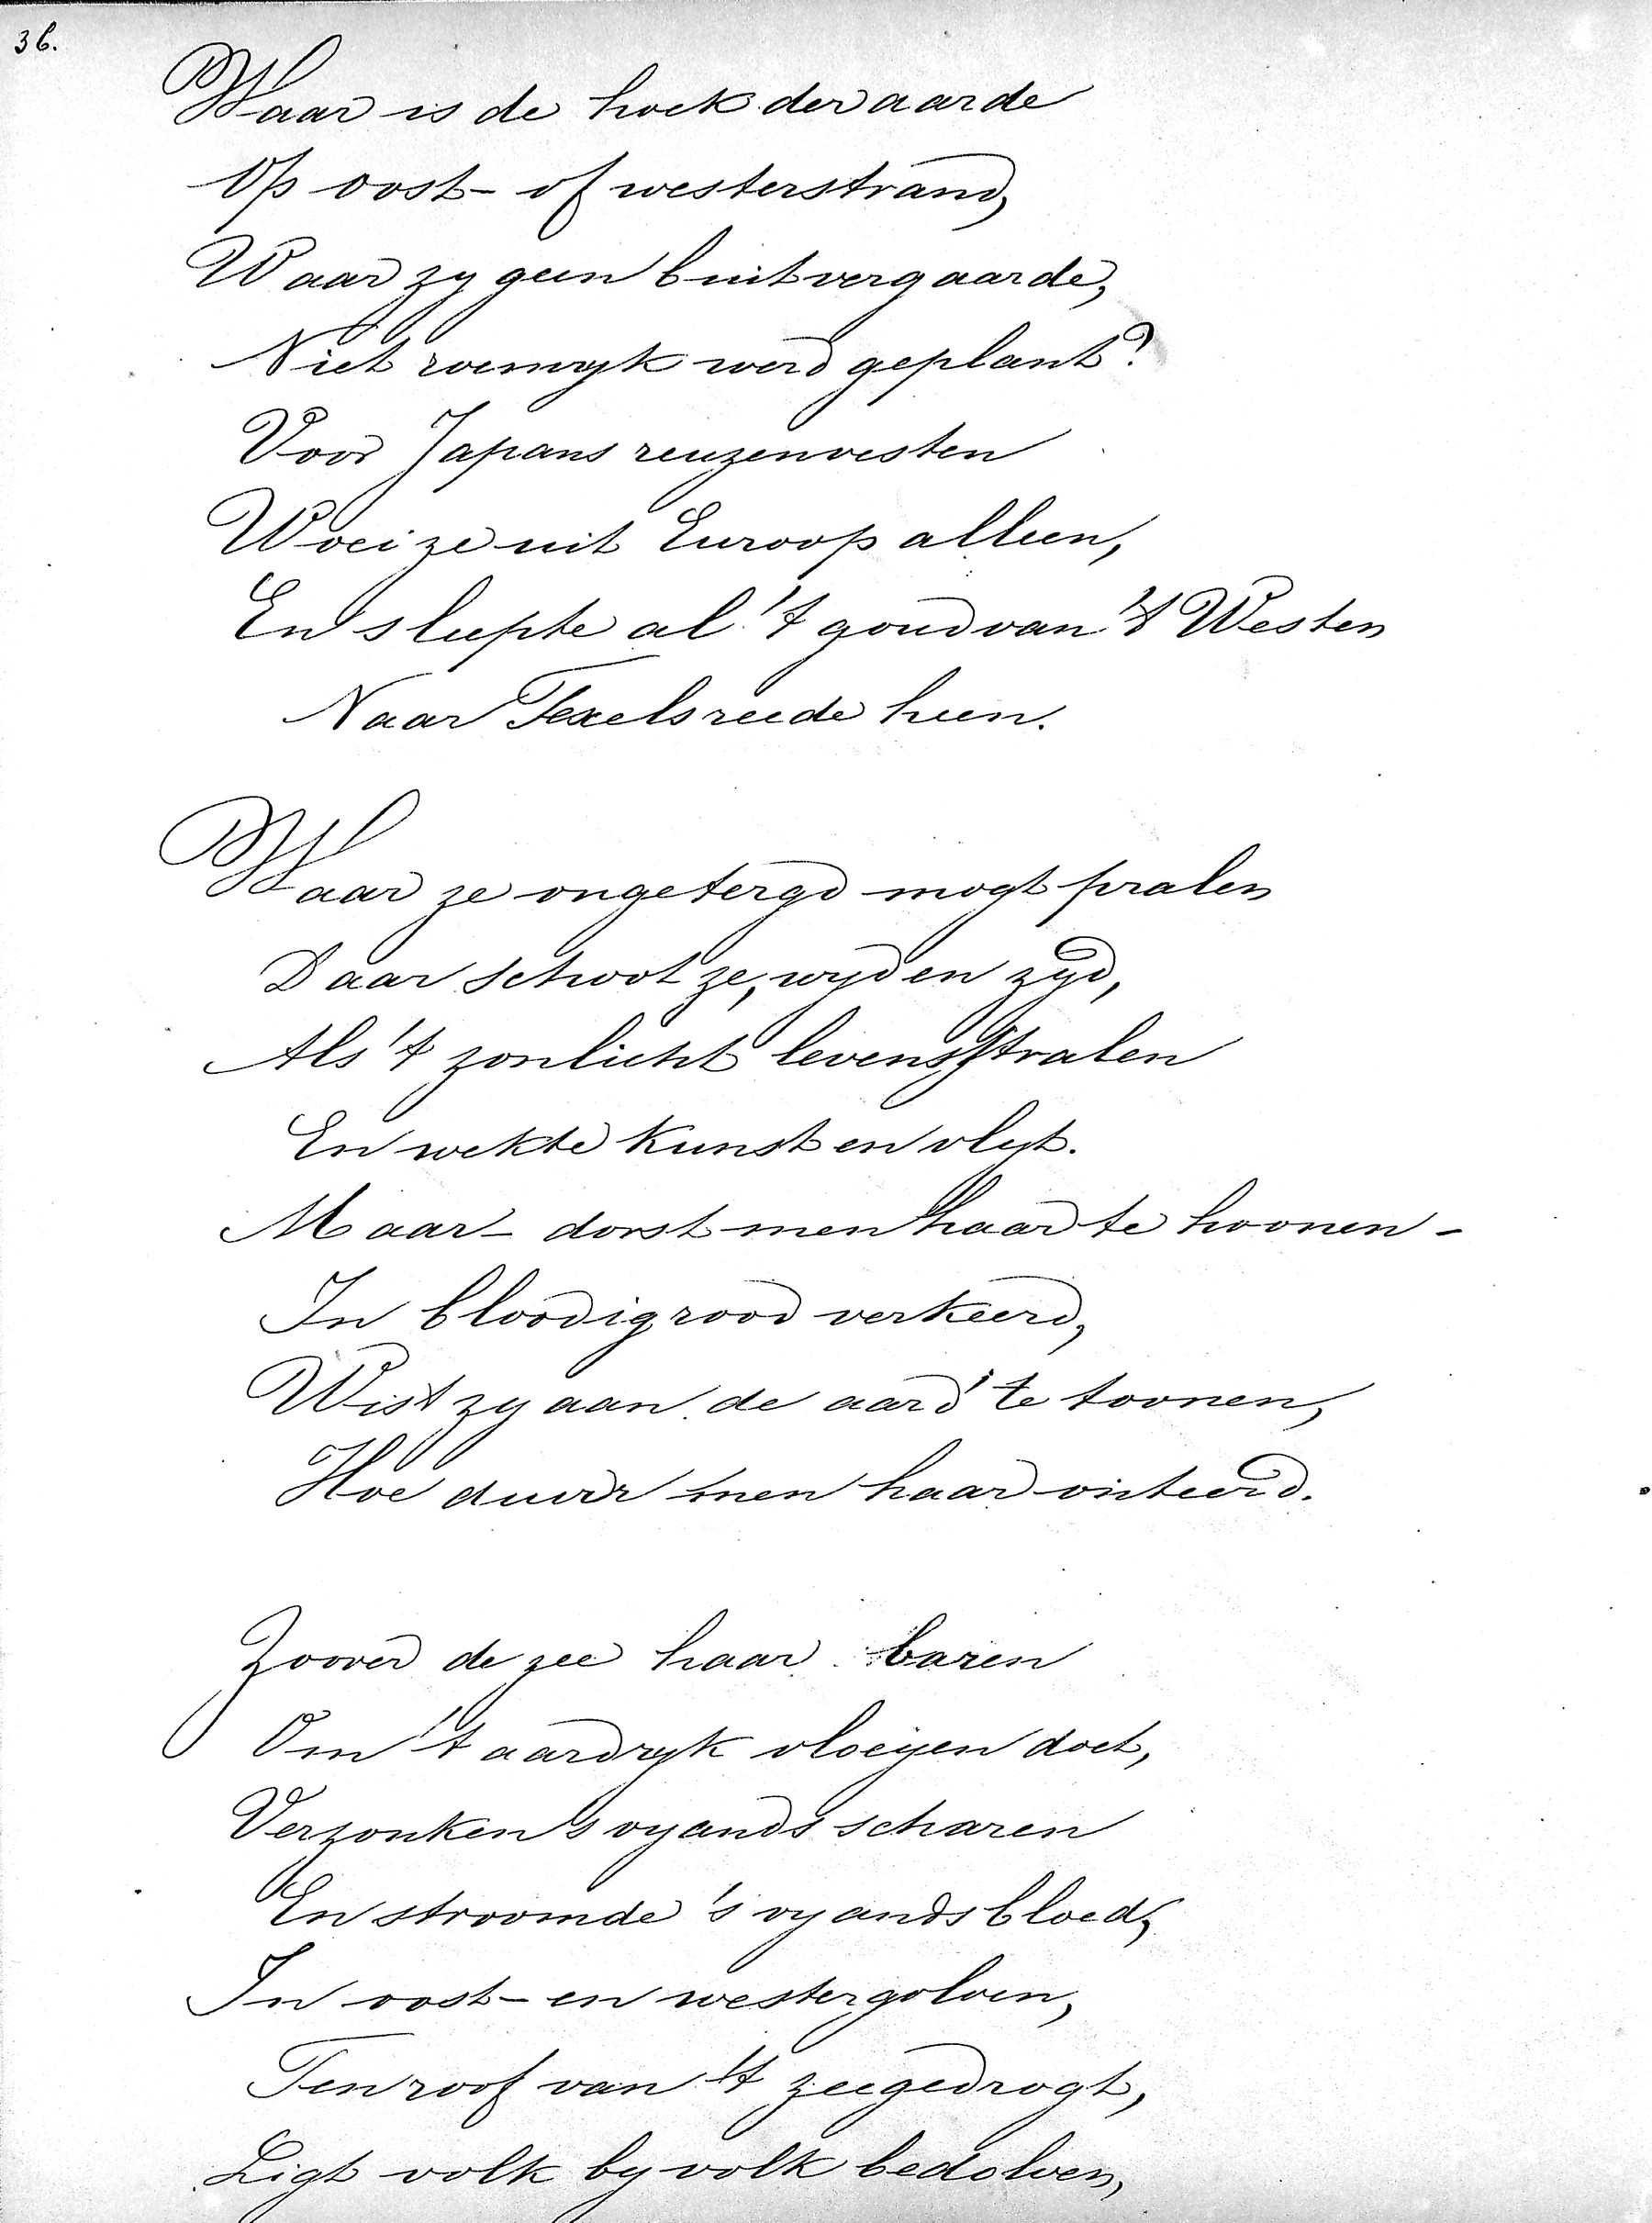 36.
Waar is de hoek der aarde
Op oost- of westerstrand,
Waar zy geen buit vergaarde,
Niet roemryk werd geplant?
Voor Japans reuzenvesten
Woei ze uit Euroop alleen,
En sleepte al 't goud van 't Westen
Naar Texels reede heen.
Waar ze ongetergd mogt pralen
Daar schoot ze, wyd en zyd,
Als 't zonlicht levensstralen
En wekte kunst en vlyt.
Maar - dorst men haar te hoonen -
In bloedig rood verkeerd,
Wist zy aan de aard' te toonen,
Hoe duur men haar onteerd.
Zoover de zee haar baren
Om 't aardryk vloeyen doet,
Verzonken 's vyands scharen
En stroomde 's vyands bloed,
In oost- en westergolven,
Ten roof van 't zeegedrogt,
Ligt volk by volk bedolven,